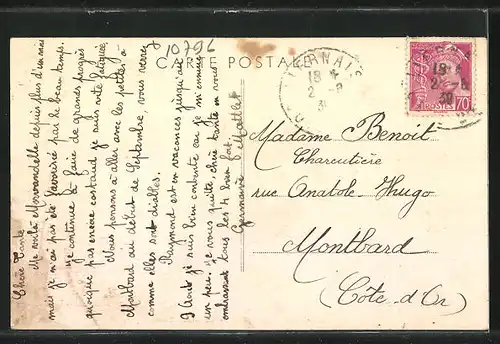 10796
CARTE POSTALE
Chère Tante
Me voilà Morvandelle depuis plus d'un mois
mais je n'ai pas été favorisée par le beau temps.
Je continue à faire de grands progrès
quoique pas encore costaud je suis vite fatiguée
Nous pensons à aller avec les petites à
Montbard au début de Septembre vous verrez
comme elles sont diables.
Raymond est en vacances jusqu'au
et je suis bien contente car je m'ennuie
un peu. Je vous quitte chère tante en vous
embrassant tous les 4 bien fort
Germaine
Madame Benoit
Charcutière
rue Anatole-Hugo
Montbard
(Côte-d'Or)
POSTES 70